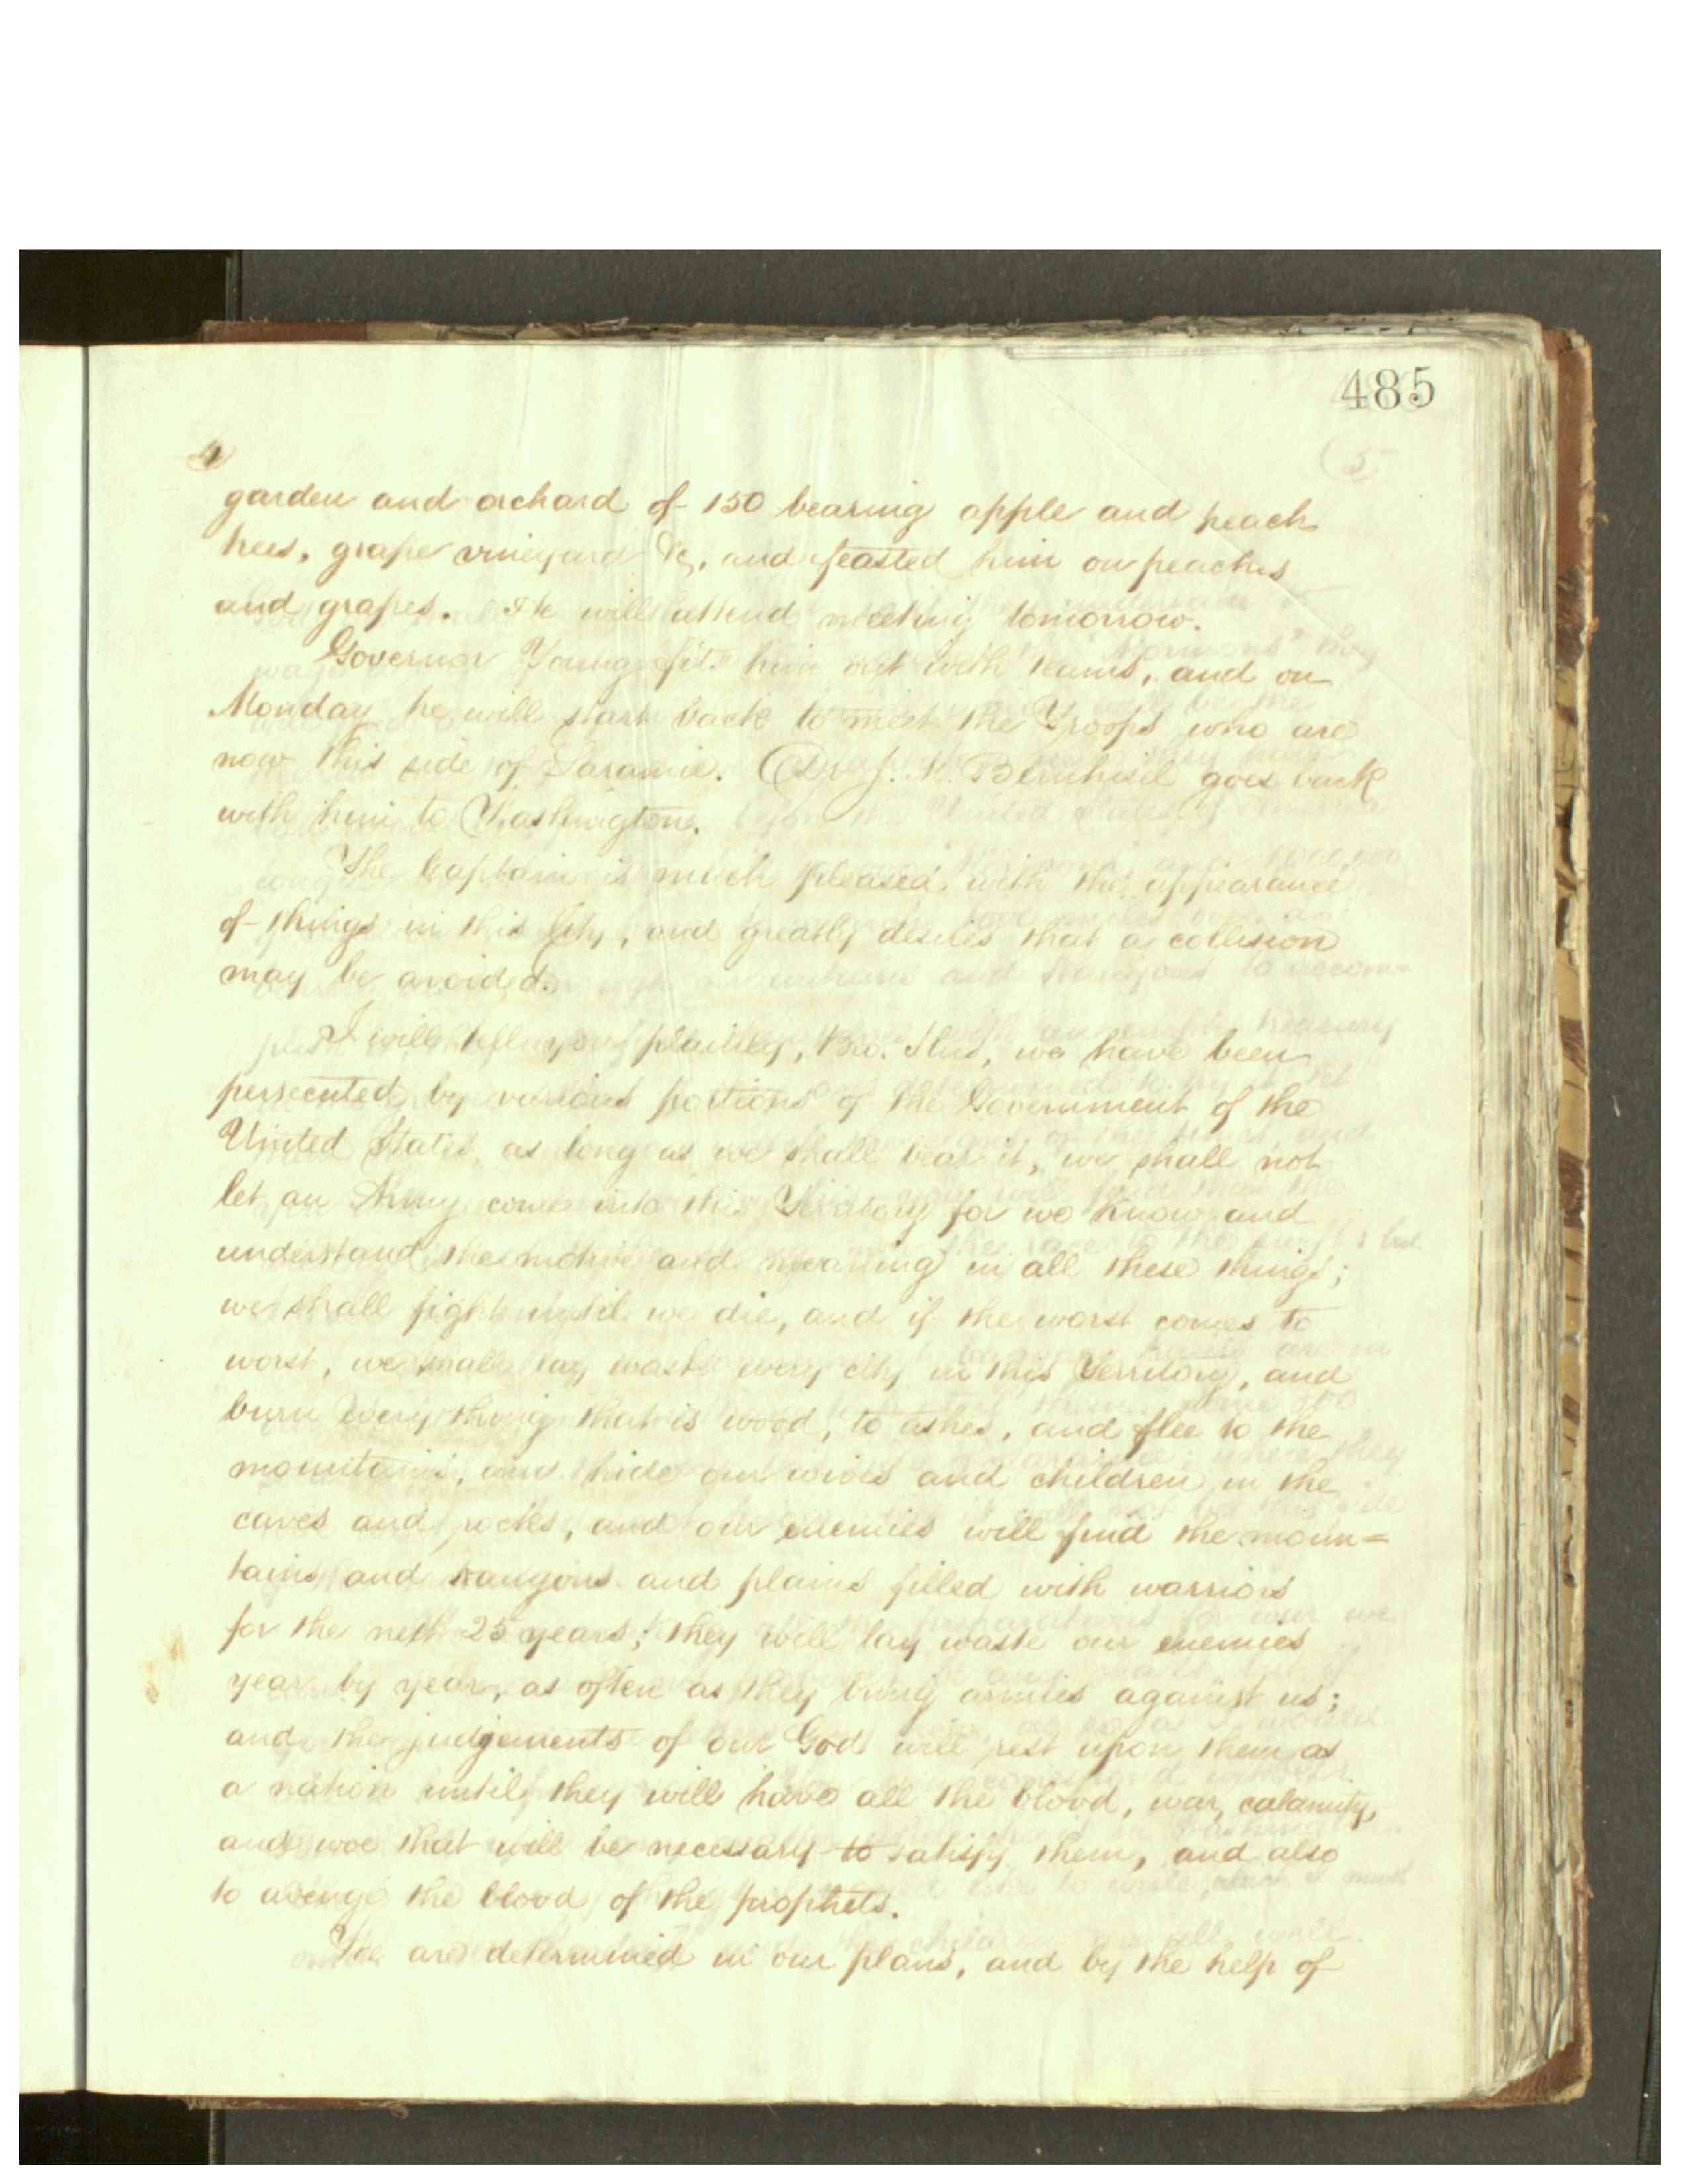 485
4
garden and orchard of 150 bearing apple and peach
trees, grape vineyard &c, and feasted him on peaches
and grapes. He will attend meeting tomorrow.
Governor Young fits him out with teams, and on
Monday he will start back to meet the Troops who are
now this side of Laramie. Dr J. M. Bernhisel goes back
with him to Washington.
The Captain is much pleased with the appearance
of things in this City, and greatly desires that a collision
may be avoided.
I will tell you plainly, Bro. we have been
persecuted by various portions of the Government of the
United States, as long as we shall bear it, we shall not
let an Army come into this Territory for we know and
understand the motive and meaning in all these things;
we shall fight until we die, and if the worst comes to
worst, we shall lay waste every city in this Territory, and
burn every thing that is wood, to ashes, and flee to the
mountains, and hide our wives and children in the
caves and rocks, and our enemies will find the moun=
tains and kangons and plains filled with warriors
for the next 25 years; they will lay waste our enemies
year by year, as often as they bring armies against us;
and the judgements of our God will rest upon them as
a nation until they will have all the blood, war, calamity,
and woe that will be necessary to satisfy them, and also
to avenge the blood of the prophets.
We are determined in our plans, and by the help of